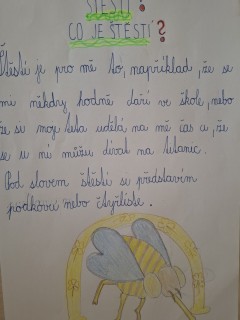 ŠTĚSTÍ?
CO JE ŠTĚSTÍ?
Štěstí je pro mě to, například, že se
mi někdy hodně daří ve škole, nebo
že si moje teta udělá na mě čas a, že
se u ní můžu dívat na Titanic.
Pod slovem štěstí se představím
podkovu nebo čtyřlístek.